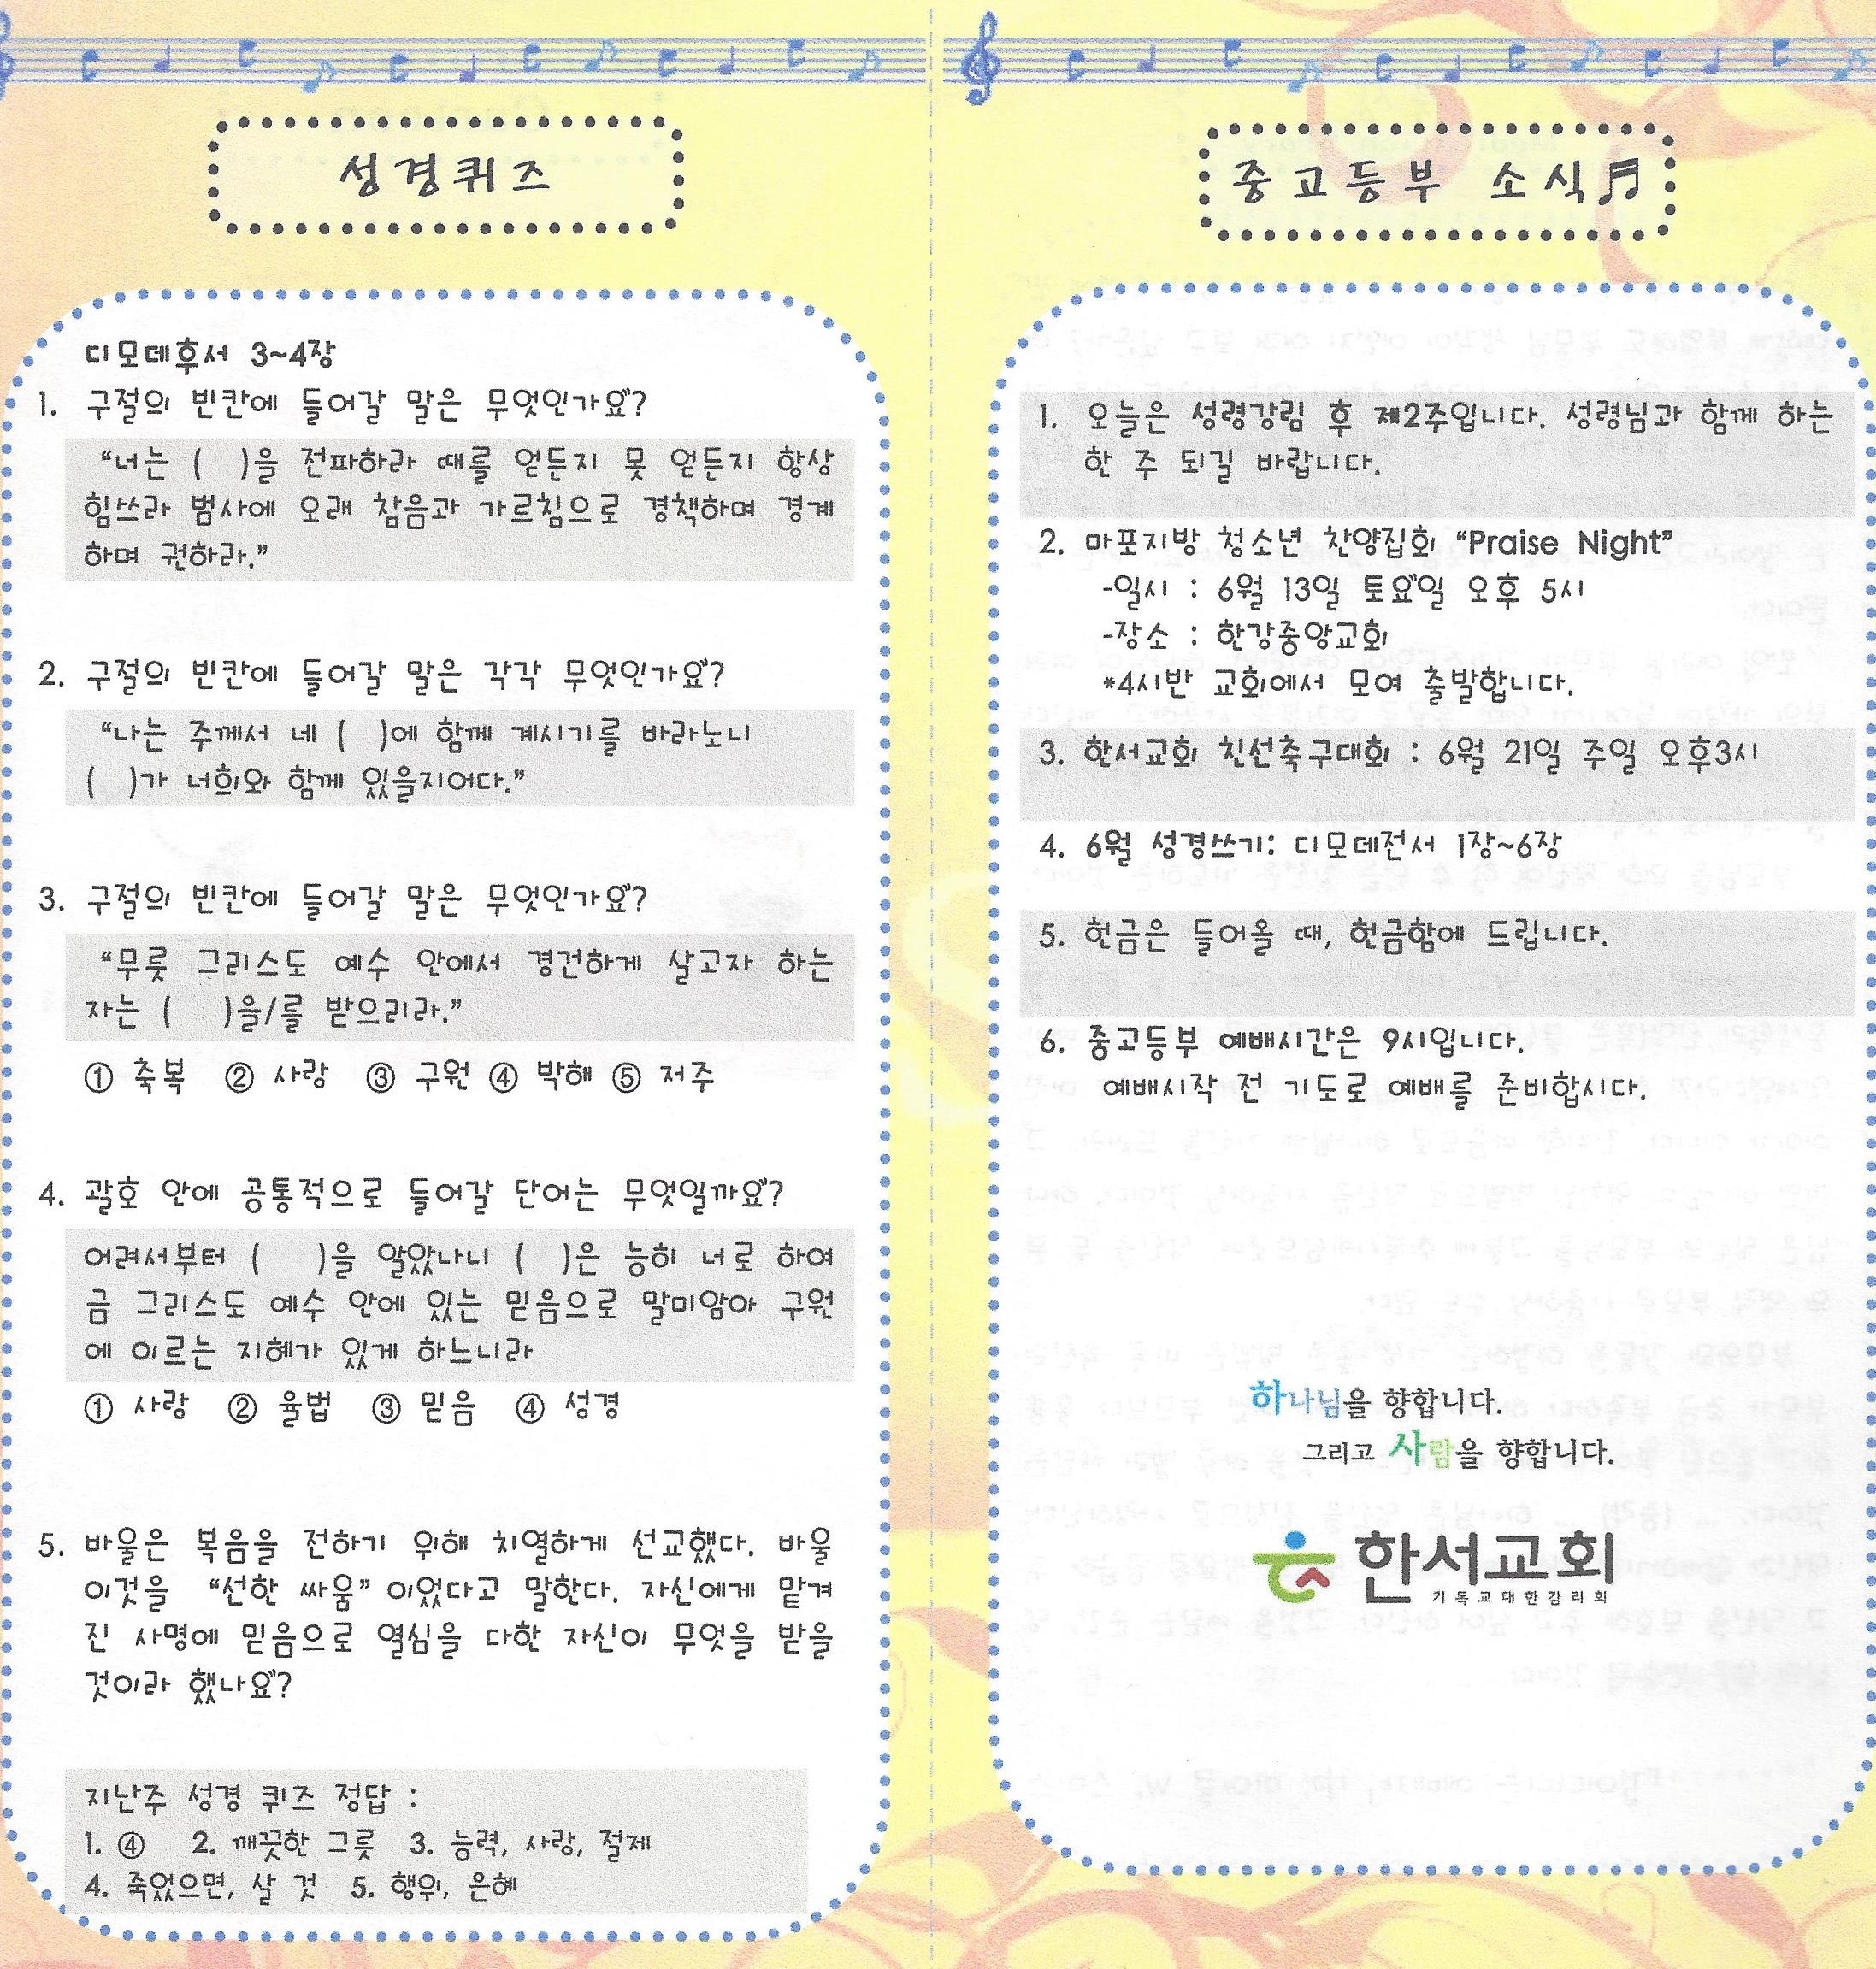 성경퀴즈
디모데후서 3~4장
1. 구절의 빈칸에 들어갈 말은 무엇인가요?
“너는 ( )을 전파하라 때를 얻든지 못 얻든지 항상
힘쓰라 범사에 오래 참음과 가르침으로 경책하며 경계
하며 권하라.”
2. 구절의 빈칸에 들어갈 말은 각각 무엇인가요?
“나는 주께서 네 ( )에 함께 계시기를 바라노니
( )가 너희와 함께 있을지어다.”
3. 구절의 빈칸에 들어갈 말은 무엇인가요?
“무릇 그리스도 예수 안에서 경건하게 살고자 하는
자는 ( )을/를 받으리라.”
① 축복 ② 사랑 ③ 구원 ④ 박해 ⑤ 저주
4. 괄호 안에 공통적으로 들어갈 단어는 무엇일까요?
어려서부터 ( )을 알았나니 ( )은 능히 너로 하여
금 그리스도 예수 안에 있는 믿음으로 말미암아 구원
에 이르는 지혜가 있게 하느니라
① 사랑 ② 율법 ③ 믿음 ④ 성경
5. 바울은 복음을 전하기 위해 치열하게 선교했다. 바울
이것을 “선한 싸움” 이었다고 말한다. 자신에게 맡겨
진 사명에 믿음으로 열심을 다한 자신이 무엇을 받을
것이라 했나요?
지난주 성경 퀴즈 정답 :
1. ④ 2. 깨끗한 그릇 3. 능력, 사랑, 절제
4. 죽었으면, 살 것 5. 행위, 은혜
중고등부 소식♬
1. 오늘은 성령강림 후 제2주입니다. 성령님과 함께 하는
한 주 되길 바랍니다.
2. 마포지방 청소년 찬양집회 “Praise Night”
-일시 : 6월 13일 토요일 오후 5시
-장소 : 한강중앙교회
*4시반 교회에서 모여 출발합니다.
3. 한서교회 친선축구대회 : 6월 21일 주일 오후3시
4. 6월 성경쓰기: 디모데전서 1장~6장
5. 헌금은 들어올 때, 헌금함에 드립니다.
6. 중고등부 예배시간은 9시입니다.
예배시작 전 기도로 예배를 준비합시다.
하나님을 향합니다.
그리고 사람을 향합니다.
한서교회
기독교대한감리회